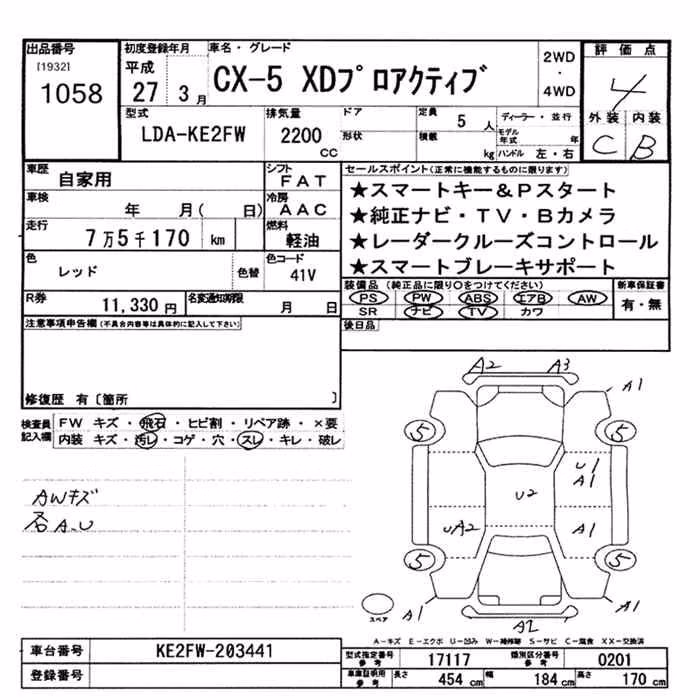 出品番号 初度登録年月 車名・グレード 2WD ・ 4WD 評価点
[1932] 1058 平成 27 3月 CX-5 XDプロアクティブ 4
型式 排気量 ドア 定員 5人 ディーラー・並行 外装 内装
LDA-KE2FW 2200 CC 形状 積載 kg モデル年式 年 ハンドル 左・右 C B
車歴 自家用 シフト FAT セールスポイント(正常に機能するものに限ります)
車検 年 月( 日) 冷房 AAC ★スマートキー&Pスタート
走行 7万5千170 km 燃料 軽油 ★純正ナビ・TV・Bカメラ
色 レッド 色替 色コード 41V ★レーダークルーズコントロール
★スマートブレーキサポート
R券 11,330円 名変通知期限 月 日 装備品(純正品に限り○をつけてください) 新車保証書
PS PW ABS エアB AW 有・無
SR ナビ TV カワ
注意事項申告欄(不具合内容等は具体的に記入して下さい) 後日品
修復歴 有〔箇所 〕
検査員記入欄 FW キズ・飛石・ヒビ割・リペア跡・×要
内装 キズ・汚レ・コゲ・穴・スレ・キレ・破レ
AWキズ
各A.U
A2 A3
A1
5 5
U1
A1
U2
UA2 A1
5 5
A1 A1
スペア A2
A-キズ E-エクボ U-凹み W-補修跡 S-サビ C-腐食 XX-交換済
車台番号 KE2FW-203441 型式指定番号 参考 17117 類別区分番号 参考 0201
登録番号 車庫証明用 参考 長さ 454 cm 幅 184 cm 高さ 170 cm